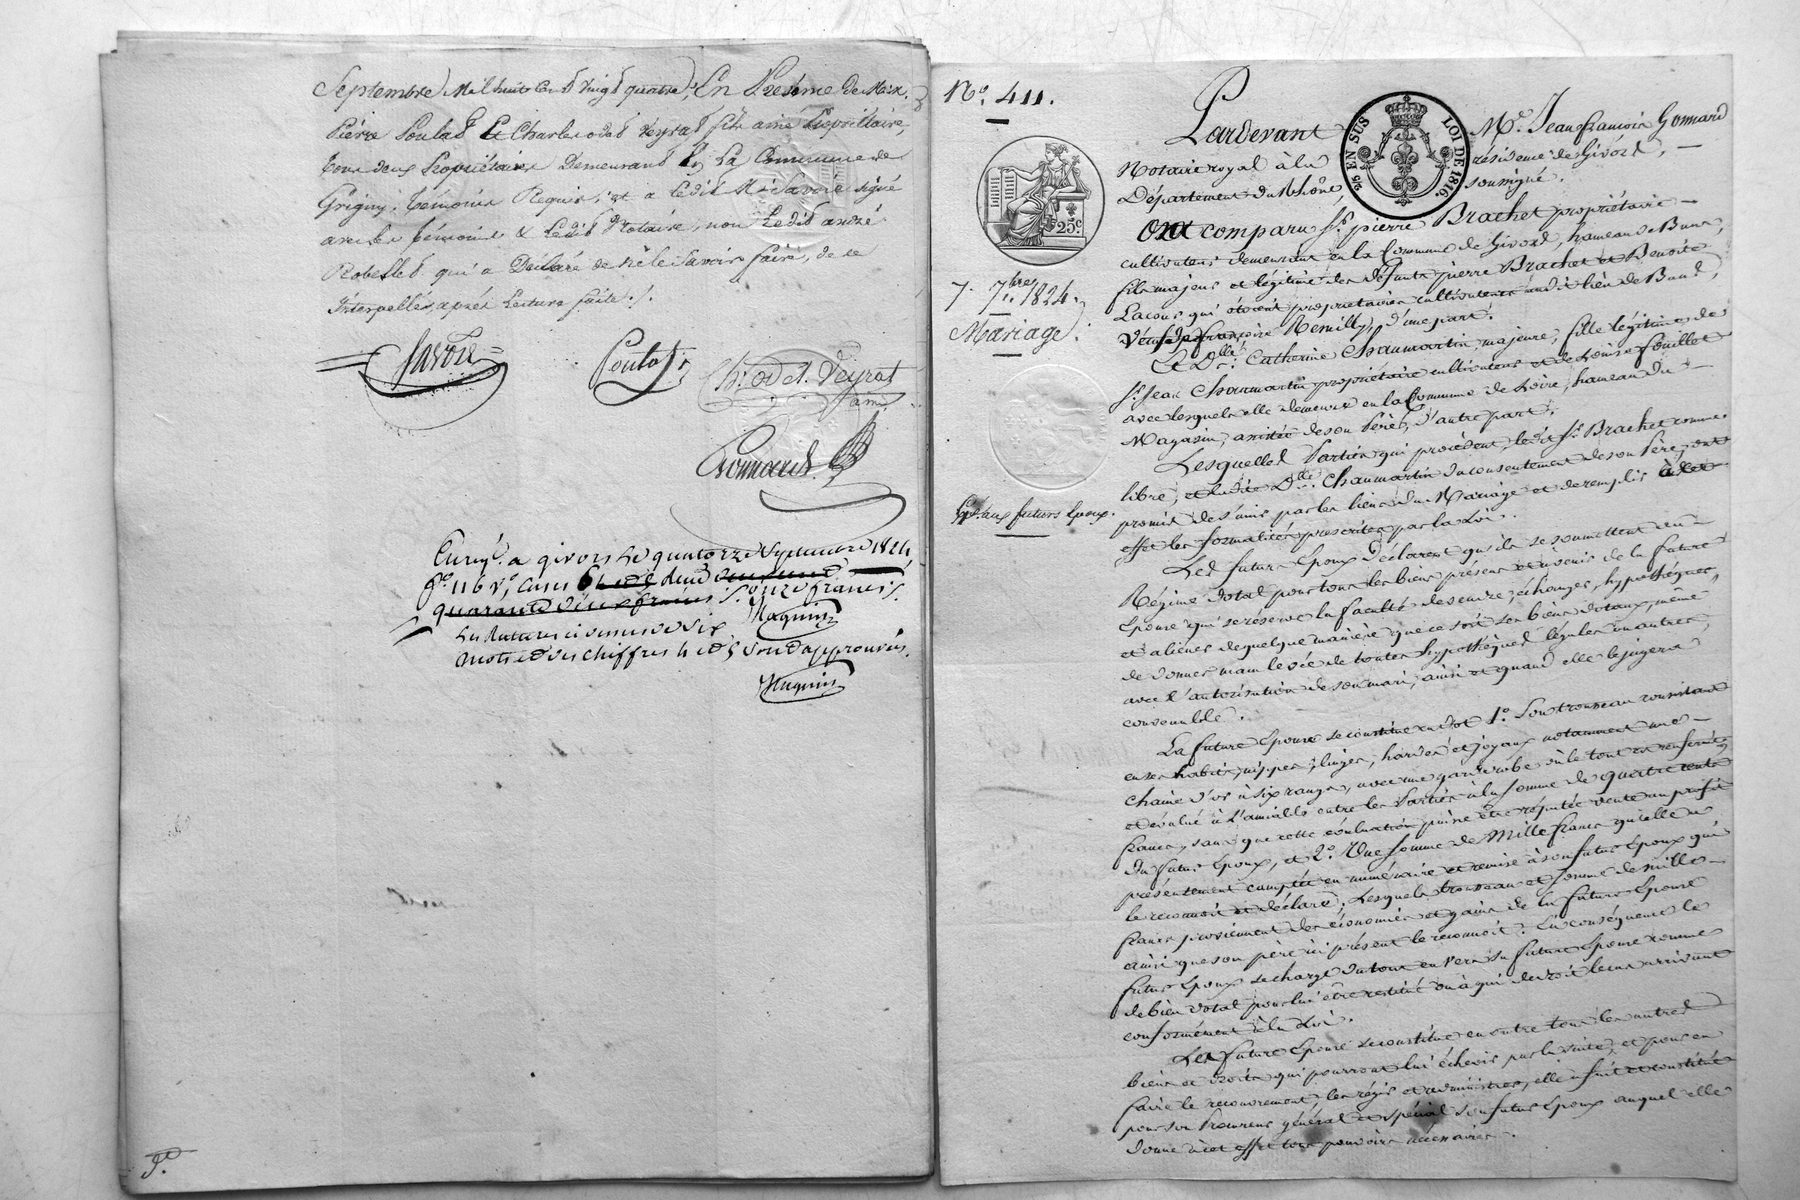 Septembre Mil huit Cent vingt quatre, En Présence de Mes.rs
Pierre Poulat Et Charles odet Veyrat fils ainé Propriétaire,
tous deux Propriétaires Demeurant En La Commune de
Grigny, témoins Requis, et a ledit Mr Savoie signé
avec les témoins & Ledit Notaire, non Ledit andré
Robellet qui a Déclaré de ne le Savoir faire, de ce
Interpellés, après Lecture faite./.
Savoie
Poulat
Ch. odet. Veyrat
ainé
Gonnard
Enreg.é a givors Le quatorze Septembre 1824
f.o 116 v.o, cases deux
quarante deux francs onze francs
Maquin
Les Ratures ci dessus de six
mots et des chiffres 4 et 5 sont approuvés.
Maquin
N.o 411.
7. 7.bres 1824.
Mariage.
25c
Gd. aux futurs Epoux.
2/6 EN SUS
LOI DE 1816.
Pardevant M.e Jean françois Gonnard
Notaire royal à la résidence de Givors,
Département du Rhône, soussigné.
Ont comparu S.r pierre Brachet propriétaire
cultivateur demeurant en la Commune de Givors, hameau de Bans,
fils majeur et légitime des défunts pierre Brachet et Benoite
Lacour qui étoient propriétaires cultivateurs audit lieu de Band,
Veuf de françoise Remilly, d'une part.
Et D.lle Catherine Chaumartin majeure, fille légitime de
S.r Jean Chaumartin propriétaire cultivateur et de Louise fouillet
avec lesquels elle demeure en la Commune de Loire, hameau du
Magasin, assistée de son Père, d'autre part.
Lesquelles Parties qui procèdent, ledit S.r Brachet comme
libre, et ladite D.lle Chaumartin du consentement de son Père, ont
promis de s'unir par les liens du Mariage et de remplir à cet
effet les formalités prescrites par la Loi.
Les futurs Epoux déclarent qu'ils se soumettent au
Régime dotal pour tous les biens présens et à venir de la future
Epouse qui se réserve la faculté de vendre, échanger, hypothéquer,
et aliéner de quelque manière que ce soit ses biens dotaux, même
de donner main levée de toutes hypothèques légales ou autres,
avec l'autorisation de son mari, ainsi et quand elle le jugera
convenable.
La future Epouse se constitue en dot 1.o Son trousseau consistant
en ses habits, nippes, linges, hardes et joyaux notamment une
chaine d'or à six rangs, avec une garderobe où le tout est renfermé,
et évalué à l'amiable entre les Parties à la somme de quatre cents
francs, sans que cette évaluation puisse être réputée vente au profit
du futur Epoux, et 2.o Une somme de Mille francs qu'elle a
présentement comptée en numéraire et remise à son futur Epoux qui
le reconnoit et déclare; Lesquels trousseau et somme de mille
francs proviennent des économies et gains de la future Epouse
ainsi que son père ici présent le reconnoit. En conséquence le
futur Epoux se charge du tout envers sa future Epouse comme
de bien dotal pour lui être restitué ou à qui de droit le cas arrivant
conformément à la Loi.
Les future Epouse se constitue en outre tous les autres
biens et droits qui pourront lui échoir par la suite, et pour en
faire le recouvrement, les régir et administrer, elle a fait et constitué
pour son Procureur général et spécial son futur Epoux auquel elle
donne à cet effet tous pouvoirs nécessaires.